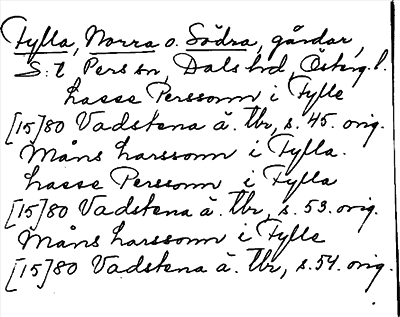 Fylla, Norra o. Södra, gårdar,
S:t Pers sn, Dals hd, Österg. l.
Lasse Perssonn i Fylle
[15]80 Vadstena ä. tbr, s. 45. orig.
Måns Larssonn i Fylla.
Lasse Perssonn i Fylla
[15]80 Vadstena ä. tbr, s. 53. orig.
Måns Larssonn i Fylle
[15]80 Vadstena ä. tbr, s. 54. orig.